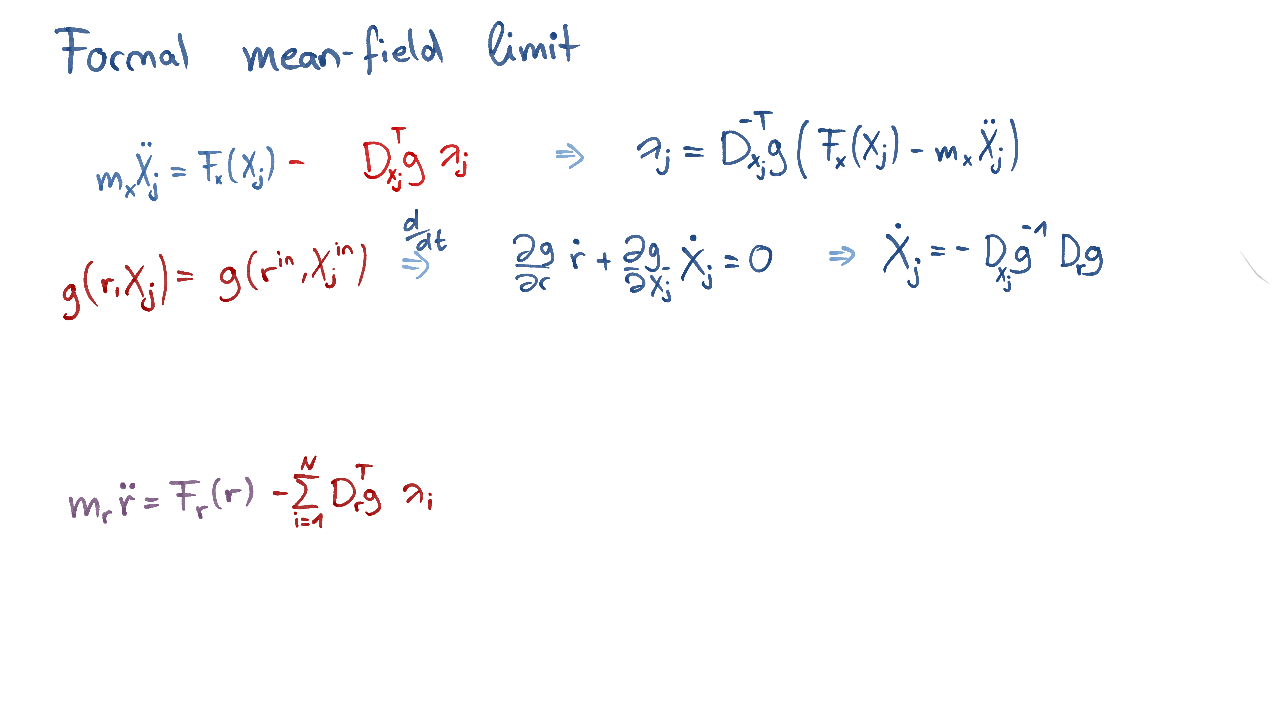 Formal mean-field limit
mₓẌⱼ = Fₓ(Xⱼ) - D_{Xⱼ}^T g λⱼ ⇒ λⱼ = D_{Xⱼ}^{-T} g (Fₓ(Xⱼ) - mₓẌⱼ)
g(r, Xⱼ) = g(r^{in}, Xⱼ^{in}) d/dt ⇒ ∂g/∂r ṙ + ∂g/∂Xⱼ Ẋⱼ = 0 ⇒ Ẋⱼ = - D_{Xⱼ} g^{-1} D_r g
m_r r̈ = F_r(r) - ∑_{i=1}^{N} D_r^T g λᵢ